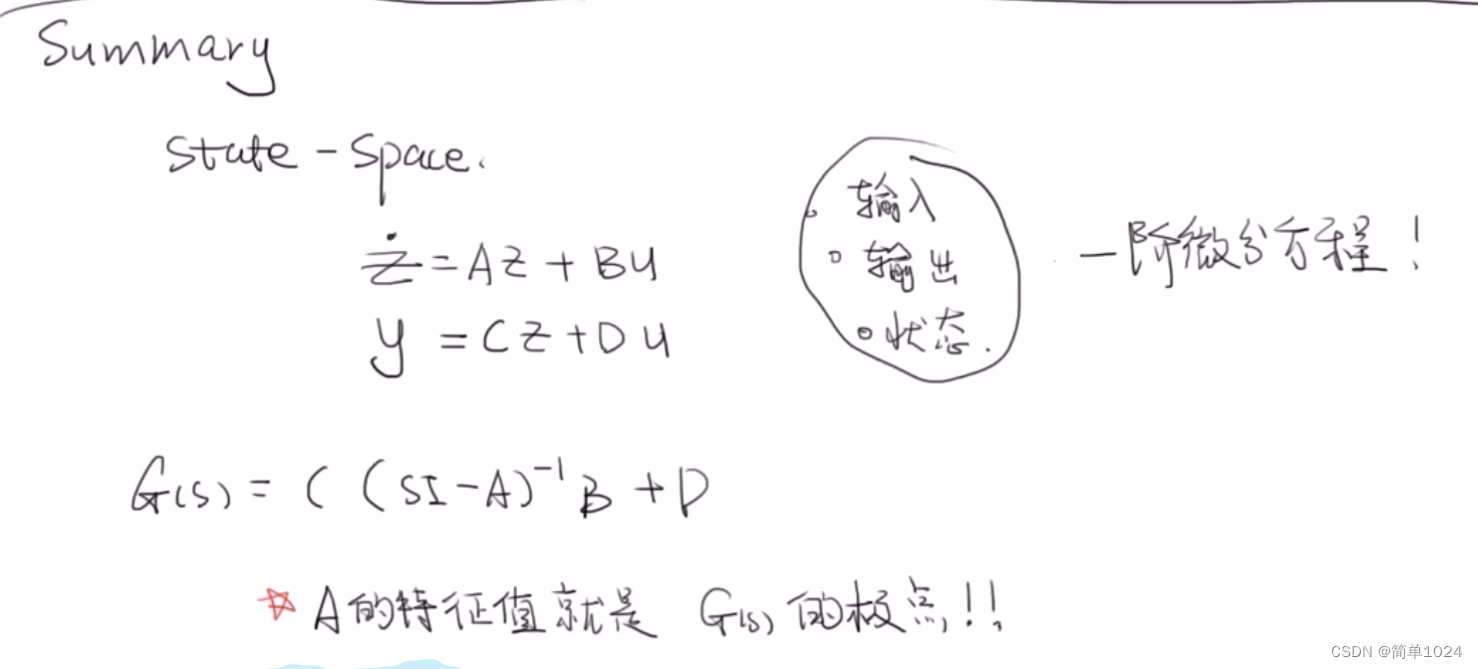 Summary
state-space.
ż = AZ + BU
y = CZ + DU
输入
输出
状态.
一阶微分方程!
G(s) = C (SI-A)⁻¹B + D
☆ A的特征值就是 G(s) 的极点!!
CSDN @简单1024